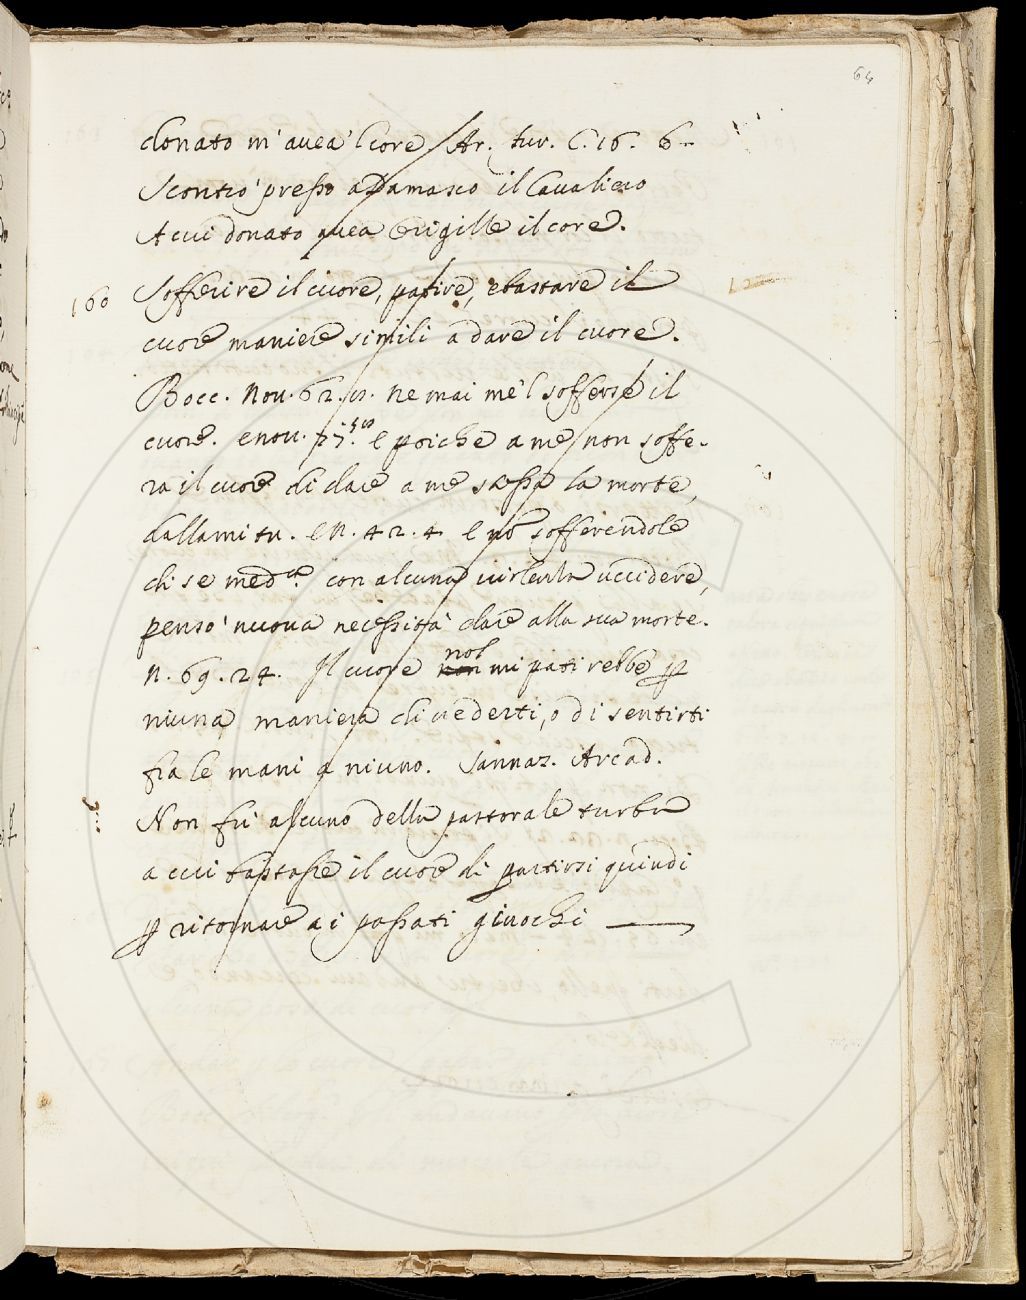 64
donato m'avea 'l core Ar. fur. C. 16. 6
Scontrò presso a Damasco il Cavaliero
A cui donato avea Origille il core.
160 Sofferire il cuore, patire, e bastare il
cuore maniere simili a dare il cuore.
Bocc. Nov. 62. ne mai me 'l sofferse il
cuore. e nov. 77. E poiche a me non soffe-
ra il cuore di dare a me stessa la morte,
dallami tu. e N. 42. 4 E nō sofferendole
di se med.ª con alcuna violentia uccidere,
pensò nuova necessità dare alla sua morte.
N. 69. 24. Il cuore nol mi patirebbe ꝑ
niuna maniera di vederti, o di sentirti
fra le mani a niuno. Sannaz. Arcad.
Non fù alcuno della pastorale turba
a cui bastasse il cuore di partirsi quindi
ꝑ ritornare a i passati giuochi